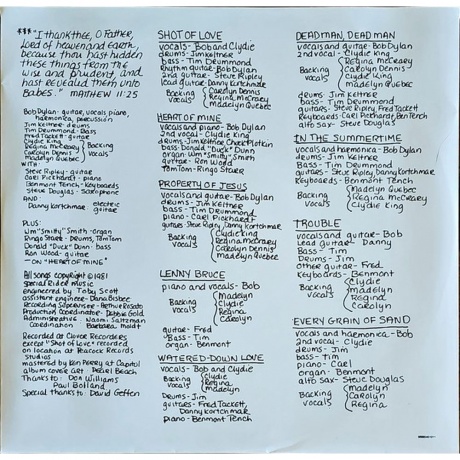 *** "I thank thee, O Father,
Lord of heaven and earth,
because thou hast hidden
these things from the
wise and prudent, and
hast revealed them unto
babes." MATTHEW 11:25
Bob Dylan - guitar, vocals, piano,
harmonica, percussion
Jim Keltner - drums
Tim Drummond - Bass
Fred Tackett - guitar
Clydie King
Regina McCreary
Carolyn Dennis
Madelyn Quebec
Backing
Vocals
WITH:
Steve Ripley - guitar
Carl Pickhardt - piano
Benmont Tench - Keyboards
Steve Douglas - Saxophone
AND:
Danny Kortchmar electric
guitar
PLUS:
Wm "Smitty" Smith - organ
Ringo Starr - Drums, TomTom
Donald "Duck" Dunn - bass
Ron Wood - guitar
- ON "HEART OF MINE"
All songs copyright © 1981
Special Rider Music
engineered by Toby Scott
assistant engineer - Dana Bisbee
Production Coordinator - Debbie Gold
Administrative - Naomi Saltzman
Coordination Barbara Moldt
Recorded at Clover Recorders
except "Shot of Love" recorded
on location at Peacock Records
Studios
mastered by Ken Perry at Capitol
album cover Art - Pearl Beach
Thanks to: Don Williams
Paul
Special thanks to: David Geffen
SHOT OF LOVE
vocals - Bob and Clydie
drums - Jim Keltner
bass - Tim Drummond
Rhythm guitar - Bob Dylan
2nd guitar - Steve Ripley
lead guitar - Danny Kortchmar
Backing
vocals
Carolyn Dennis
Regina McCreary
Madelyn Quebec
HEART OF MINE
vocals and piano - Bob Dylan
2nd vocal - Clydie King
drums - Jim Keltner Chuck Plotkin
bass - Donald "Duck" Dunn
organ - Wm "Smitty" Smith
guitar - Ron Wood
TomTom - Ringo Starr
PROPERTY OF JESUS
vocals and guitar - Bob Dylan
drums - Jim Keltner
bass - Tim Drummond
piano - Carl Pickhardt
guitars - Steve Ripley, Danny Kortchmar
Backing
vocals
Clydie King
Regina McCreary
Carolyn Dennis
Madelyn Quebec
LENNY BRUCE
piano and vocals - Bob
Backing
vocals
Madelyn
Clydie
Regina
Carolyn
guitar - Fred
Bass - Tim
organ - Benmont
WATERED-DOWN LOVE
vocals - Bob and Clydie
Backing
vocals
Clydie
Regina
madelyn
Drums - Jim
guitars - Fred Tackett,
Danny Kortchmar
piano - Benmont Tench
DEAD MAN, DEAD MAN
vocals and guitar - Bob Dylan
2nd vocal - Clydie King
Backing
vocals
Regina McCreary
Carolyn Dennis
Clydie King
Madelyn Quebec
drums - Jim Keltner
bass - Tim Drummond
guitars - Steve Ripley, Fred Tackett
Keyboards - Carl Pickhardt, Ben Tench
alto sax - Steve Douglas
IN THE SUMMERTIME
vocals and harmonica - Bob Dylan
drums - Jim Keltner
bass - Tim Drummond
guitars - Steve Ripley Danny Kortchmar
Keyboards - Benmont Tench
Backing
vocals
Madelyn Quebec
Regina McCreary
Clydie King
TROUBLE
vocals and guitar - Bob
Lead guitar - Danny
Bass - Tim
Drums - Jim
other guitar - Fred
Keyboards - Benmont
Backing
vocals
Clydie
madelyn
Regina
Carolyn
EVERY GRAIN OF SAND
vocals and harmonica - Bob
2nd vocal - Clydie
drums - Jim
bass - Tim
piano - Carl
organ - Benmont
alto sax - Steve Douglas
Backing
vocals
madelyn
Carolyn
Regina